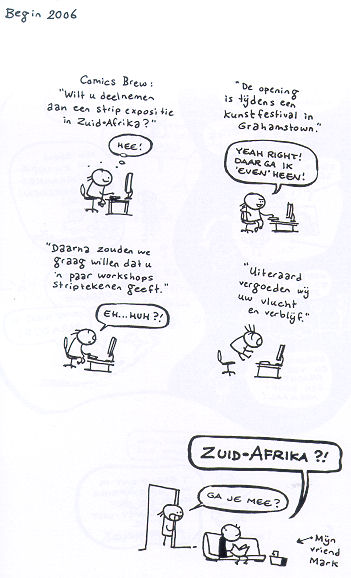 Begin 2006
Comics Brew:
"Wilt u deelnemen
aan een strip expositie
in Zuid-Afrika?"
HEE!
"De opening
is tijdens een
kunstfestival in
Grahamstown."
YEAH RIGHT!
DAAR GA IK
'EVEN' HEEN!
"Daarna zouden we
graag willen dat u
'n paar workshops
striptekenen geeft."
EH...HUH?!
"Uiteraard
vergoeden wij
uw vlucht
en verblijf."
ZUID-AFRIKA?!
GA JE MEE?
Mijn
vriend
Mark